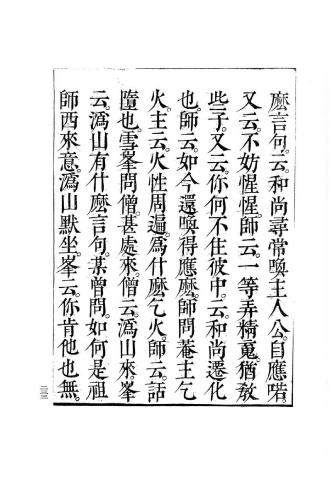 麽言句。云。和尚尋常喚主人公。自應喏。
又云。不妨惺惺。師云。一等弄精䰟。猶教
些子。又云。你何不住彼中。云。和尚遷化
也。師云。如今還喚得應麽。師問菴主乞
火。主云。火性周遍。爲什麽乞火。師云。話
墮也。雪峯問僧。甚處來。僧云。潙山來。峯
云。潙山有什麽言句。某曾問。如何是祖
師西來意。潙山默坐。峯云。你肯他也無。
二三三